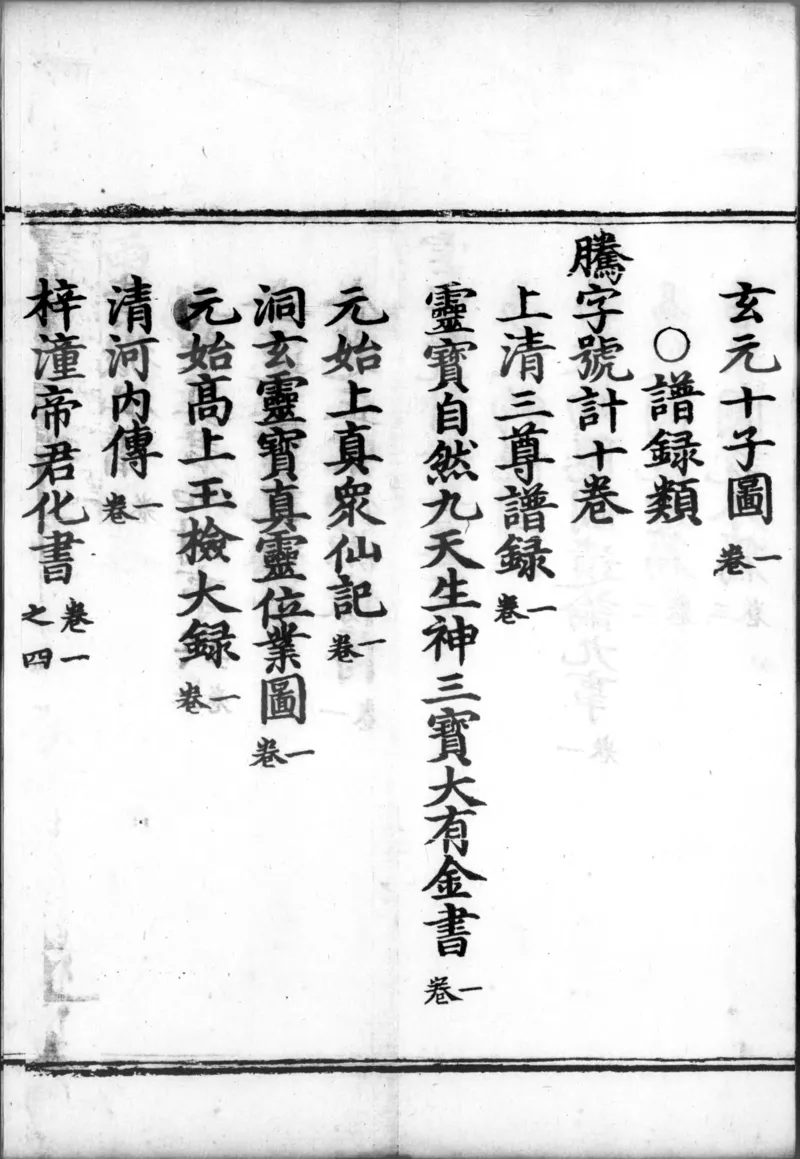 玄元十子圖 一卷
○譜録類
騰字號計十卷
上清三尊譜録 一卷
靈寶自然九天生神三寶大有金書 一卷
元始上真衆仙記 一卷
洞玄靈寶真靈位業圖 一卷
元始高上玉檢大録 一卷
清河内傳 一卷
梓潼帝君化書 卷一之四